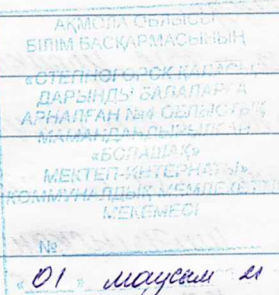 АҚМОЛА ОБЛЫСЫ
БІЛІМ БАСҚАРМАСЫНЫҢ
«СТЕПНОГОРСК ҚАЛАСЫ,
ДАРЫНДЫ БАЛАЛАРҒА
АРНАЛҒАН №4 ОБЛЫСТЫҚ
МАМАНДАНДЫРЫЛҒАН
«БОЛАШАҚ»
МЕКТЕП-ИНТЕРНАТЫ»
КОММУНАЛДЫҚ МЕМЛЕКЕТТІК
МЕКЕМЕСІ
№
«01» маусым